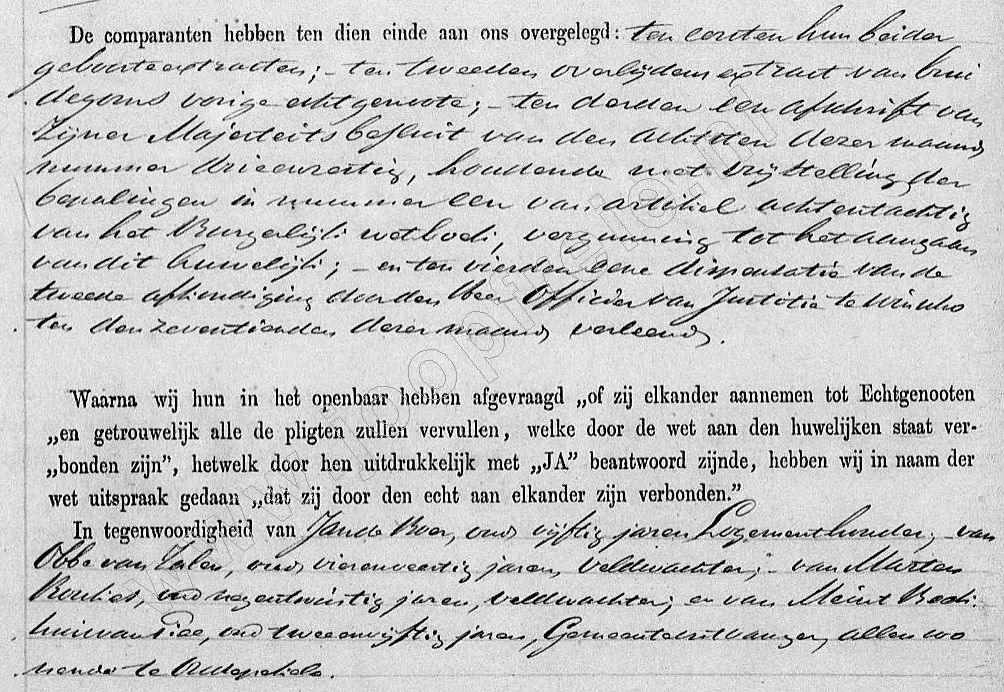 De comparanten hebben ten dien einde aan ons overgelegd: ten eersten hun beider
geboorteextracten; – ten tweeden overlijdens extract van brui
degoms vorige echtgenoote; – ten derden een afschrift van
Zijner Majesteits besluit van den achtsten dezer maand
nummer drieenzestig, houdende met vrijstelling der
bepalingen in nummer een van artikel achtentachtig
van het Burgerlijk wetboek, vergunning tot het aangaan
van dit huwelijk; – en ten vierden eene dispensatie van de
tweede afkondiging door den Heer Officier van Justitie te Winscho
ten den zeventienden dezer maand verleend.
Waarna wij hun in het openbaar hebben afgevraagd „of zij elkander aannemen tot Echtgenooten
„en getrouwelijk alle de pligten zullen vervullen, welke door de wet aan den huwelijken staat ver-
„bonden zijn”, hetwelk door hen uitdrukkelijk met „JA” beantwoord zijnde, hebben wij in naam der
wet uitspraak gedaan „dat zij door den echt aan elkander zijn verbonden.”
In tegenwoordigheid van Jan de Boer, oud vijftig jaren Logementhouder, – van
Obbe van Zalen, oud vierenveertig jaren, veldwachter; – van Marten
oud negentwintig jaren, veldwachter, en van Meint
oud tweeenvijftig jaren, Gemeenteontvanger, allen wo
nende te Oudepekela.